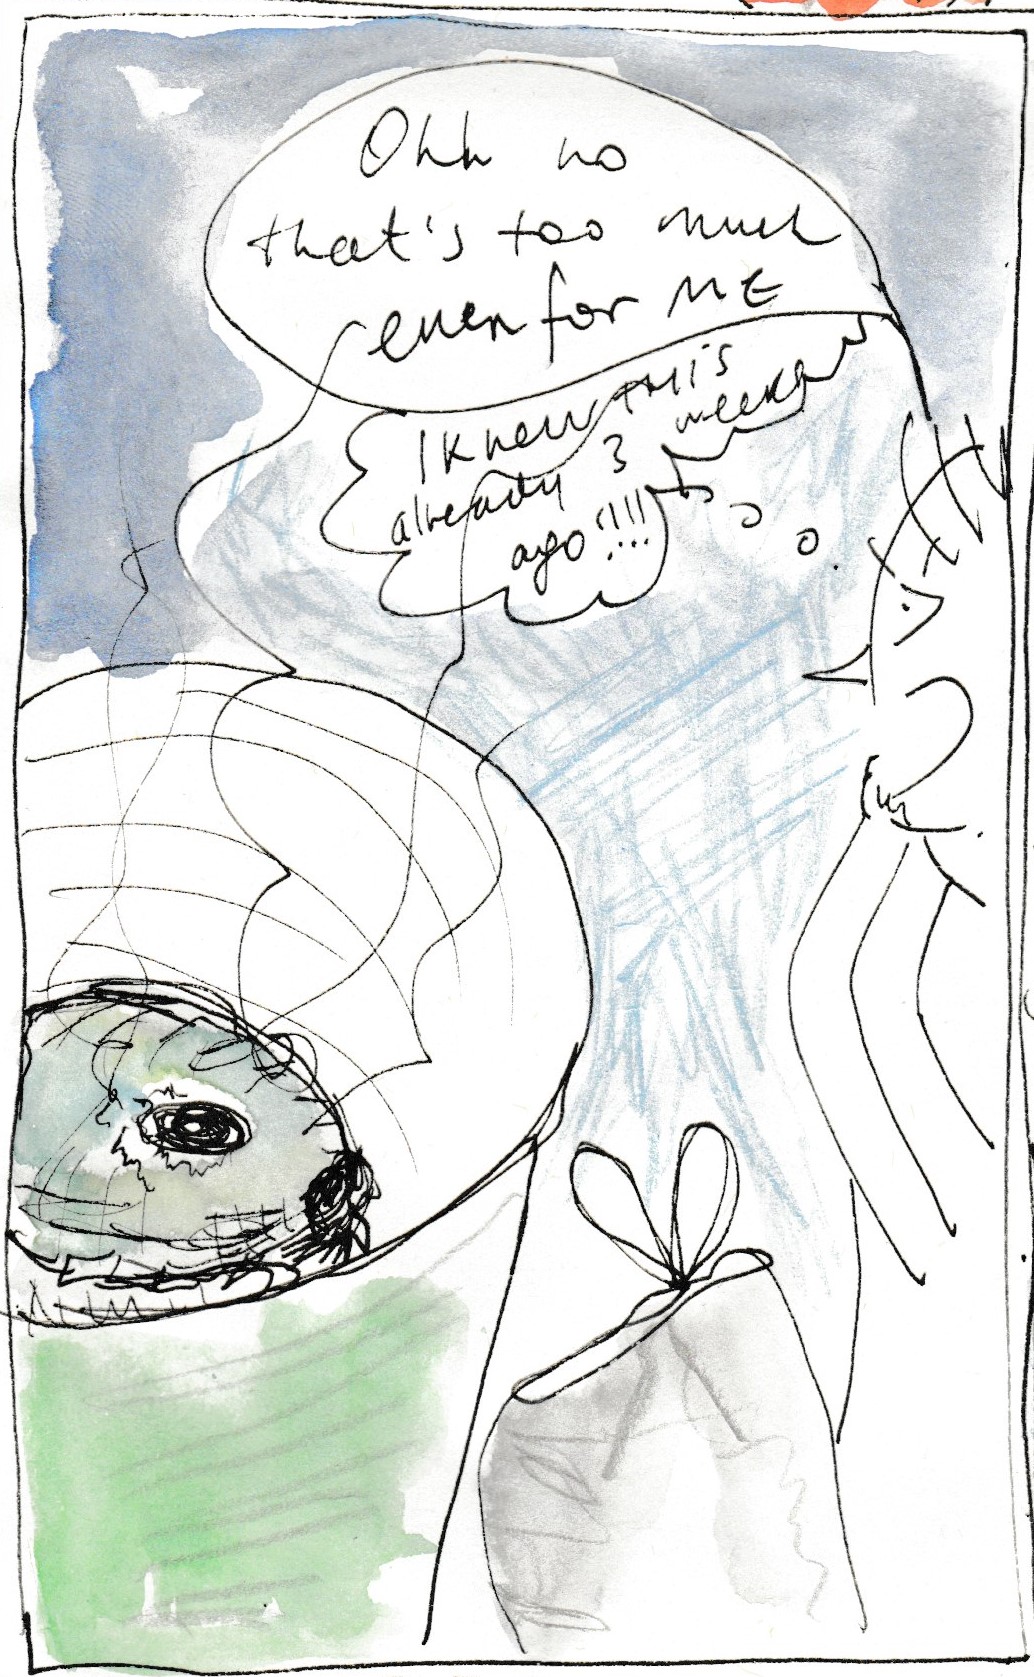 Ohh no
that's too much
even for ME
I knew THIS
already 3 weeks
ago!!!!